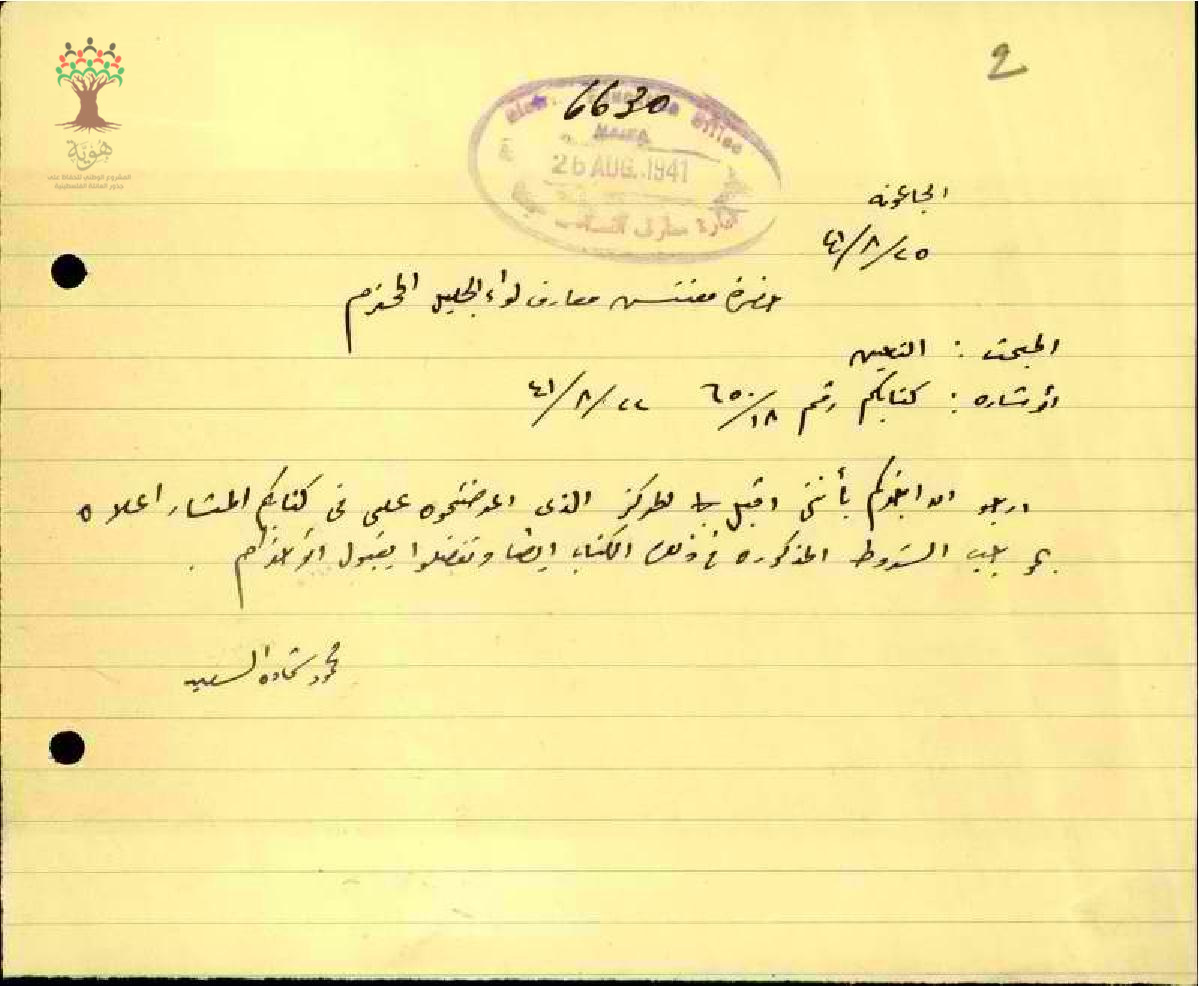 2
6630
Education Office
HAIFA
26 AUG. 1941
هوية
المشروع الوطني للحفاظ على
جذور العائلة الفلسطينية
الجاعونه
٢٥/٨/٤١
حضرة مفتش معارف لواء الجليل المحترم
المبحث : التعيين
الاشاره : كتابكم رقم ١٨/٦٥٠ ٢٢/٨/٤١
ارجو ان ابلغكم بأنني اقبل المركز الذى اعرضتموه على فى كتابكم المشار اعلاه
بموجب الشروط المذكوره فى ذلك الكتاب ايضا وتفضلوا بقبول احترامى .
محمود شحاده السعيد